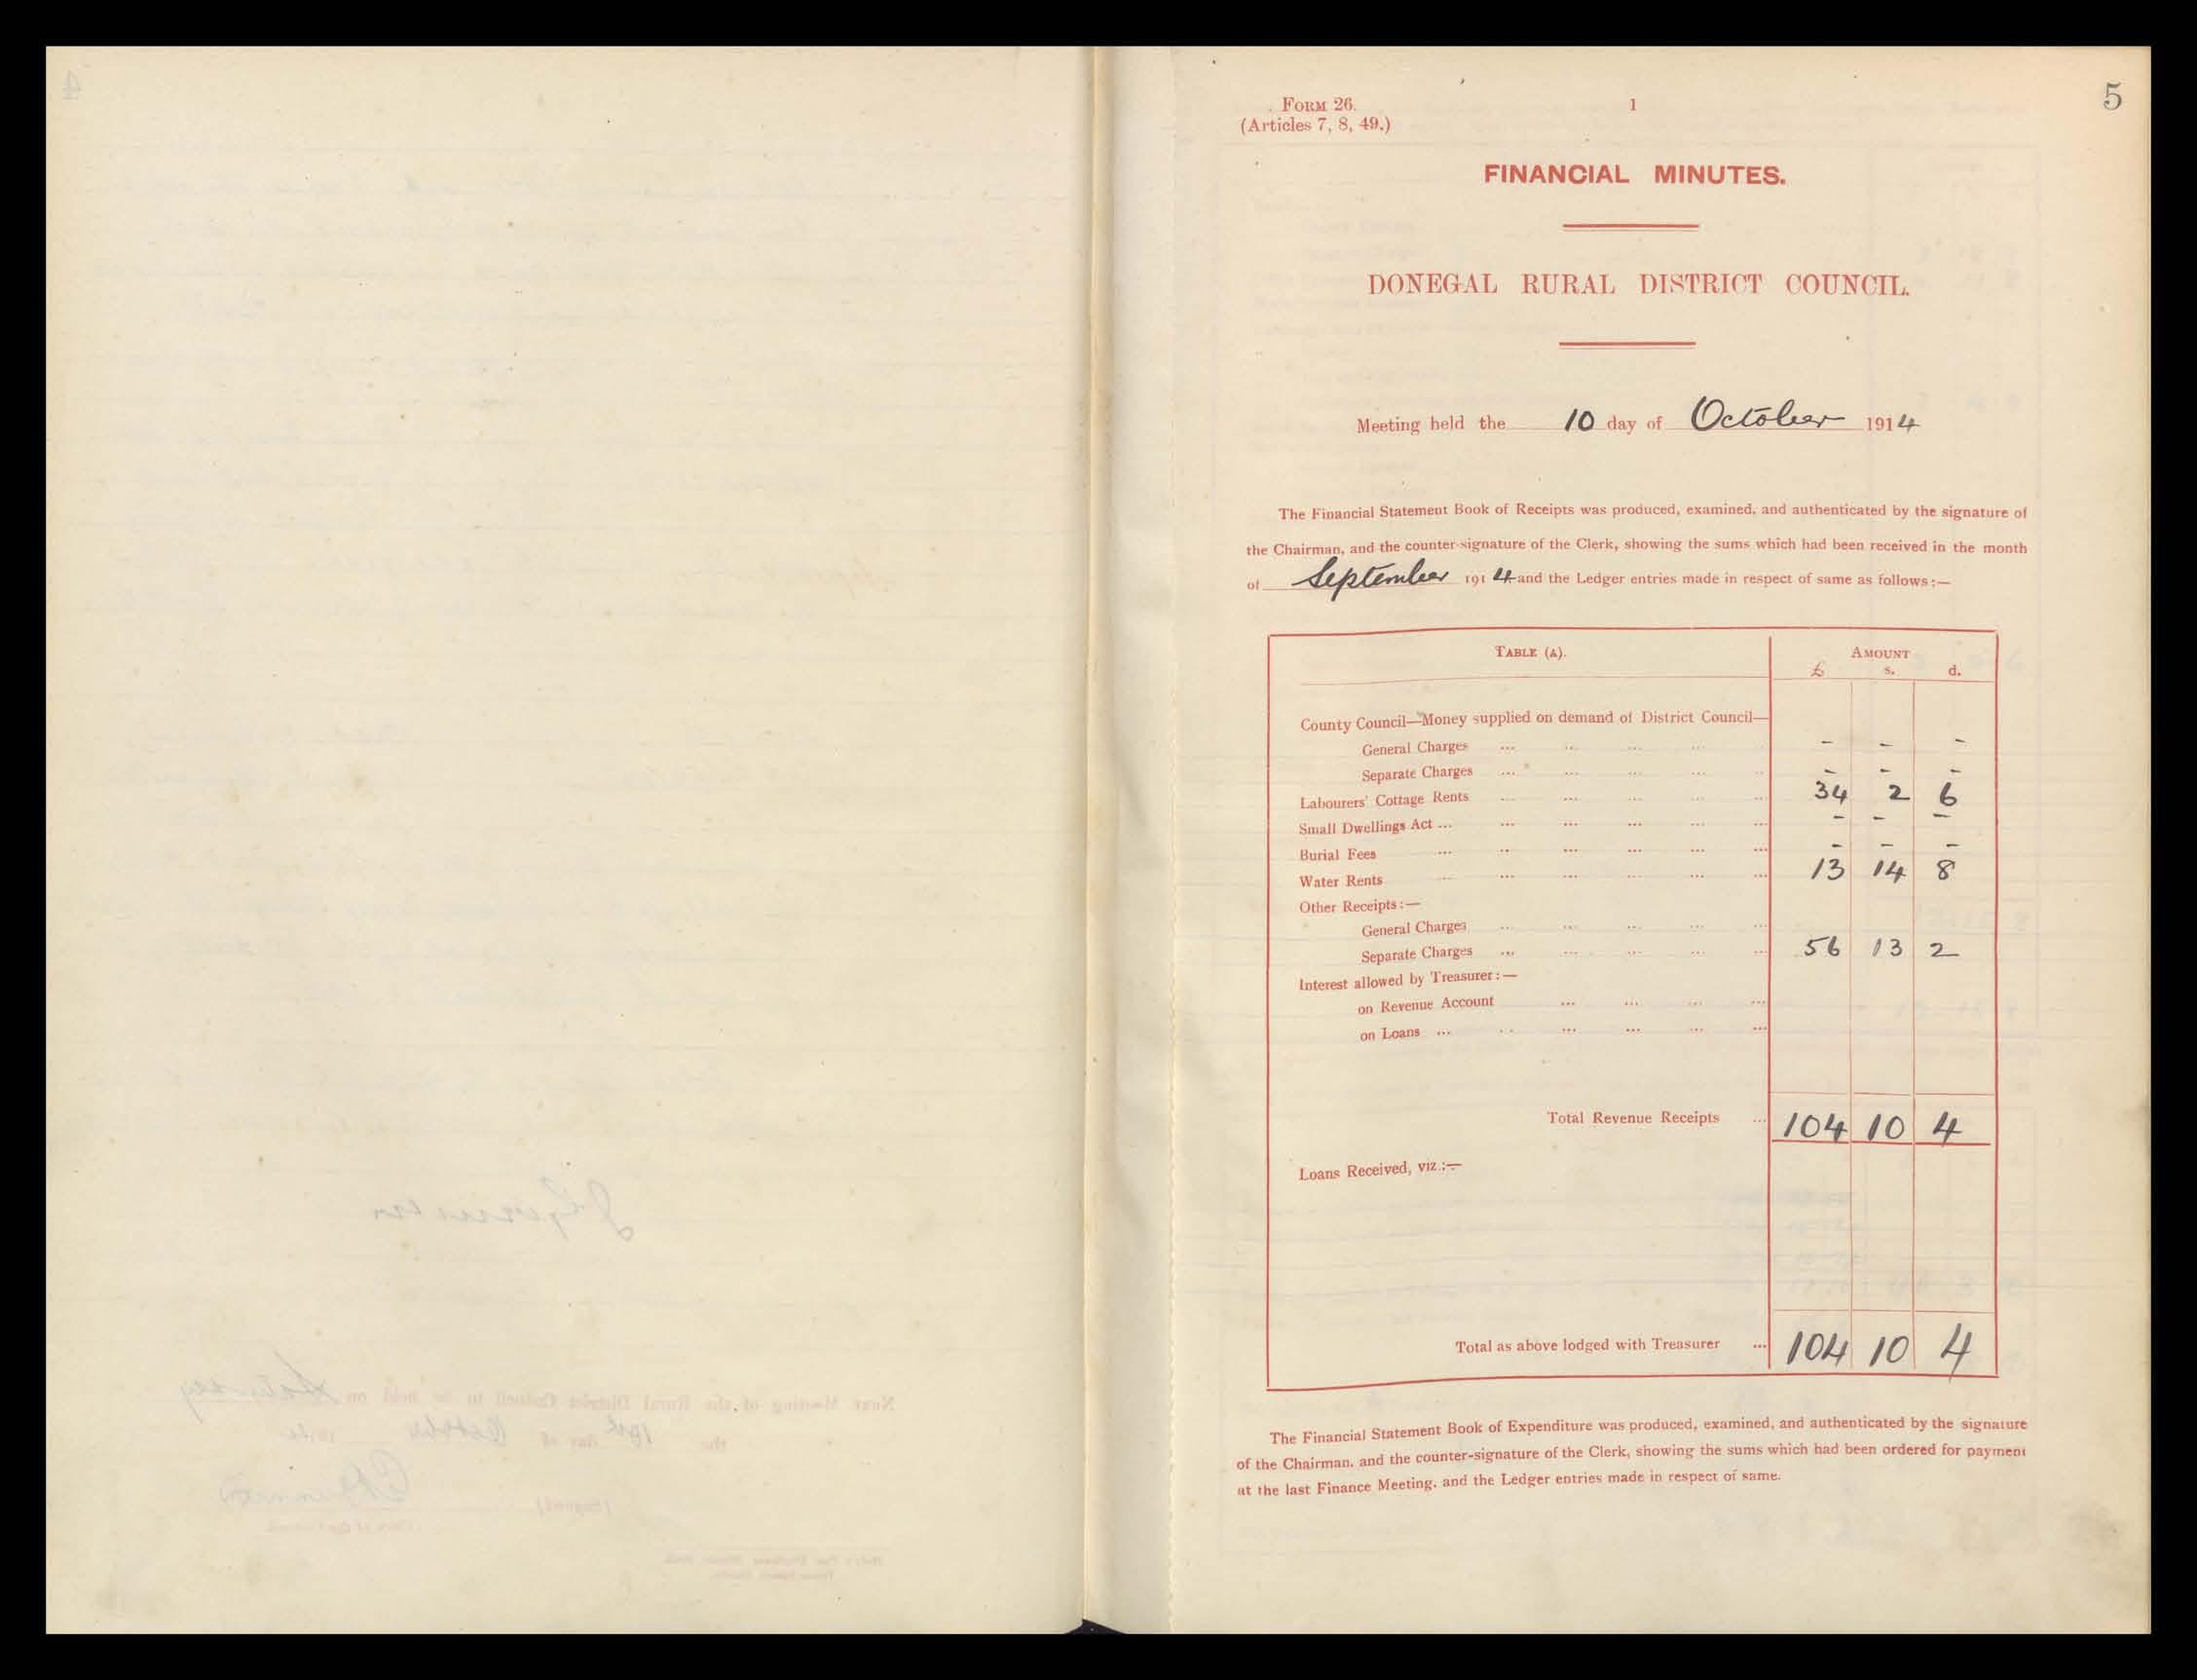 5
FORM 26.
1
(Articles 7, 8, 49.)
FINANCIAL MINUTES.
DONEGAL RURAL DISTRICT COUNCIL.
Meeting held the 10 day of October 1914
The Financial Statement Book of Receipts was produced, examined, and authenticated by the signature of
the Chairman, and the counter-signature of the Clerk, showing the sums which had been received in the month
of September 1914 and the Ledger entries made in respect of same as follows:—
TABLE (A). AMOUNT
£ s. d.
County Council—Money supplied on demand of District Council—
General Charges ... ... ... ... – – –
Separate Charges ... ... ... ... ... – – –
Labourers' Cottage Rents ... ... ... ... ... 34 2 6
Small Dwellings Act ... ... ... ... ... ... – – –
Burial Fees ... ... ... ... ... ... – – –
Water Rents ... ... ... ... ... ... 13 14 8
Other Receipts:—
General Charges ... ... ... ... ...
Separate Charges ... ... ... ... ... 56 13 2
Interest allowed by Treasurer:—
on Revenue Account ... ... ... ...
on Loans ... ... ... ... ... ...
Total Revenue Receipts ... 104 10 4
Loans Received, viz.:—
Total as above lodged with Treasurer ... 104 10 4
The Financial Statement Book of Expenditure was produced, examined, and authenticated by the signature
of the Chairman, and the counter-signature of the Clerk, showing the sums which had been ordered for payment
at the last Finance Meeting, and the Ledger entries made in respect of same.